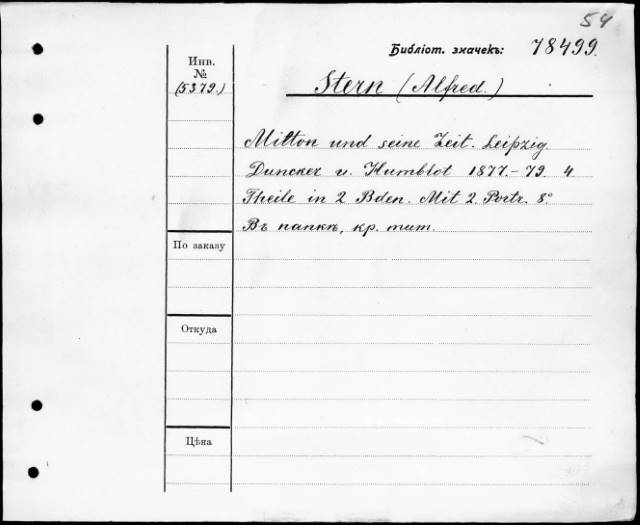 54
Библіот. значекъ: 78499.
Инв.
№
(5379.)
Stern (Alfred.)
Milton und seine Zeit. Leipzig
Duncker u. Humblot 1877.-79. 4
Theile in 2 Bden. Mit 2 Portr. 8º
Въ папкѣ, кр. тит.
По заказу
Откуда
Цѣна